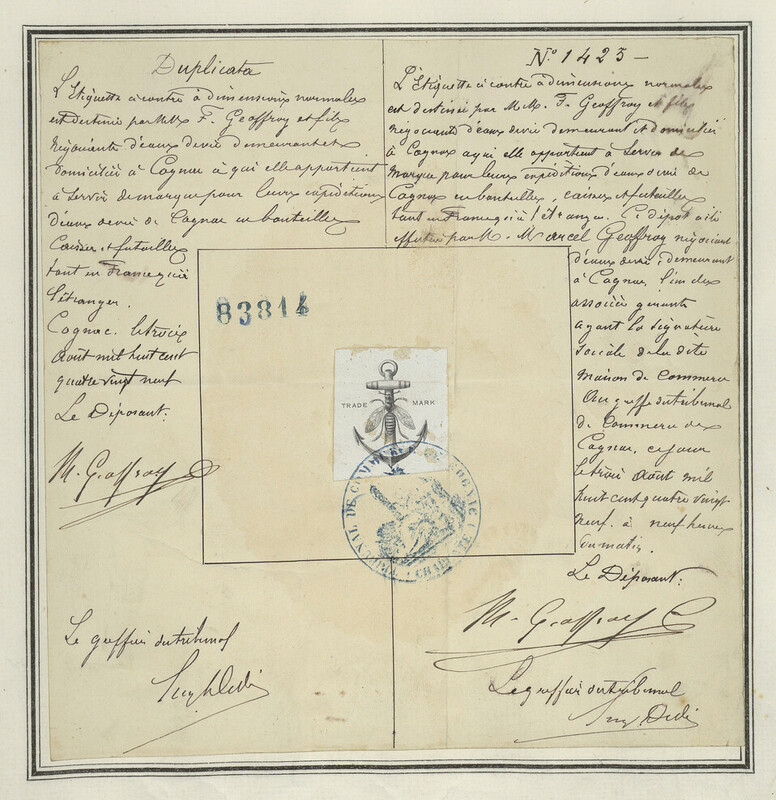 Duplicata
L'Etiquette ci contre à dimensions normales
est destinée par M.M. F. Geoffroy et fils
négociants d'eaux devie demeurant et
domiciliés à Cognac à qui elle appartient
à servir de marque pour leurs expéditions
d'eaux devie de Cognac en bouteilles
Caisses et futailles
tant en France qu'à
l'étranger.
Cognac le trois
Août mil huit cent
quatre vingt neuf
Le Déposant:
M. Geoffroy
Le greffier du tribunal
No 1423 -
L'Etiquette ci contre à dimensions normales
est destinée par M.M. F. Geoffroy et fils
négociants d'eaux devie demeurant et domiciliés
à Cognac à qui elle appartient à servir de
marque pour leurs expéditions d'eaux devie de
Cognac en bouteilles, caisses et futailles
tant en France qu'à l'étranger. Ce dépôt a été
effectué par M. Marcel Geoffroy négociant
d'eaux devie, demeurant
à Cognac, l'un des
associés gérants
ayant la signature
sociale de la dite
maison de commerce
Au greffe du tribunal
de Commerce de
Cognac, ce jour
le trois Août mil
huit cent quatre vingt
neuf à neuf heures
du matin.
Le Déposant:
M. Geoffroy
Le greffier du tribunal
83814
TRADE MARK
TRIBUNAL DE COMMERCE DE COGNAC